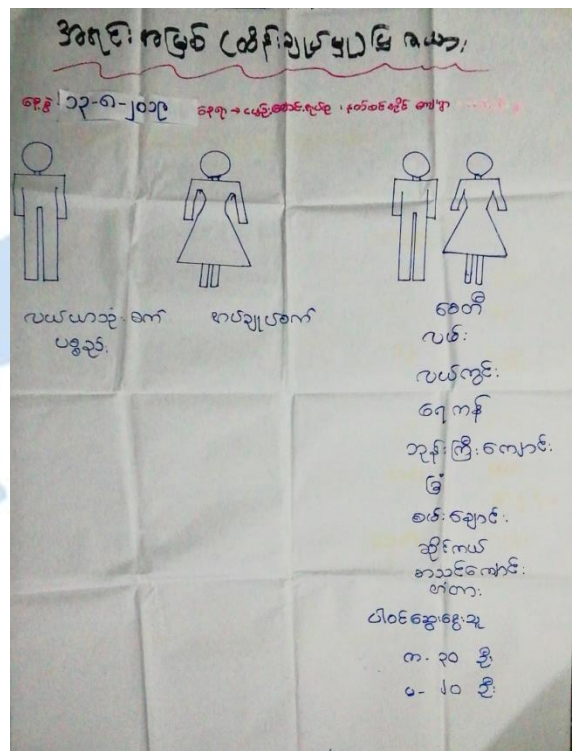 အရင်းအမြစ် (ထိန်းချုပ်မှု) ပြ ဇယား
နေ့စွဲ ၁၃-၈-၂၀၁၉ နေရာ →
လယ်ယာသုံး စက်
ပစ္စည်း
စာပ်ချုပ်စက်
စေတီ
လမ်း
လယ်ကွင်း
ရေကန်
ဘုန်းကြီးကျောင်း
ခြံ
စမ်းချောင်း
ဆိုင်ကယ်
စာသင်ကျောင်း
တံတား
ပါဝင်ဆွေးနွေးသူ
က - ၃၀ ဦး
မ - ၂၀ ဦး